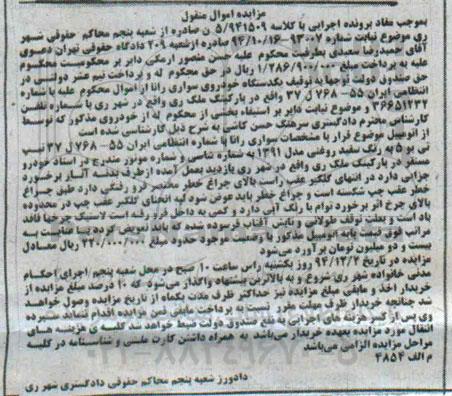 مزایده اموال منقول
بموجب مفاد پرونده اجرایی با کلاسه ۵/۹۴۱۵۰۹ ن صادره از شعبه پنجم محاکم حقوقی شهر
ری موضوع نیابت شماره ۹۳۰۰۷-۹۴/۱۰/۱۶ صادره ازشعبه ۲۰۹ دادگاه حقوقی تهران دعوی
آقای حمیدرضا سعیدی بطرفیت محکوم علیه حسن منصور ارمکی دایر بر محکومیت محکوم
علیه به پرداخت مبلغ ۱/۲۸۶/۹۰۰/۰۰۰ ریال در حق محکوم له و پرداخت نیم عشر دولتی در
حق صندوق دولت توجها به توقیف یکدستگاه خودروی سواری رانا از اموال محکوم علیه با شماره
انتظامی ایران ۵۵-۷۶۸ ل ۳۷ واقع در پارکینگ ملک ری واقع در شهر ری با شماره تلفن
۳۶۶۵۱۲۳۲ و موضوع نیابت دایر بر استیفاء بخشی از محکوم به از خودروی مذکور که توسط
کارشناس محترم دادگستری سرهنگ حسن کاشی به شرح ذیل کارشناسی شده است
از اتومبیل موضوع قرار با مشخصات سواری رانا با شماره انتظامی ایران ۵۵-۷۶۸ ل ۳۷ تیپ
تی یو ۵ به رنگ سفید روغنی مدل ۱۳۹۱ به شماره شاسی و شماره موتور مندرج در اسناد خودرو
مستقر در پارکینگ ملک ری واقع در شهر ری بازدید بعمل آمده ازطرف بدنه آثار برخورد
جزئی دارد در انتهای گلگیر عقب راست بالای چراغ خطر مختصر فرو رفتگی دارد طبق چراغ
خطر عقب چپ شکسته است و چراغ خطر باید عوض شود لبه انحنای گلگیر عقب چپ در محدوده
بالای چرخ اثر برخورد توام با رنگ آبی دارد و کمی به داخل فرو رفته است لاستیک چرخها فاقد
باد است و بعلت توقف طولانی و تابش آفتاب فرسوده شده که باید تعویض گردد با عنایت به
مراتب فوق قیمت پایه اتومبیل مذکور با وضعیت موجود حدود مبلغ ۲۲۰/۰۰۰/۰۰۰ ریال معادل
بیست و دو میلیون تومان برآورد می‌شود
مزایده در تاریخ ۹۴/۱۲/۲ روز یکشنبه راس ساعت ۱۰ صبح در محل شعبه پنجم اجرای احکام
مدنی خانواده شهرری شروع و به بالاترین پیشنهاد واگذار می‌شود که ۱۰ درصد مبلغ مزایده از
خریدار اخذ و مابقی مبلغ مزایده نیز حداکثر ظرف مدت یکماه از تاریخ مزایده وصول خواهد
شد چنانچه خریدار ظرف مهلت مقرر نسبت به پرداخت مابقی ثمن مزایده اقدام ننماید سپرده
وی پس از کسر هزینه های اجرایی به نفع صندوق دولت ضبط خواهد شد کلیه ی هزینه های
انتقال مورد مزایده بعهده خریدار می‌باشد به همراه داشتن کارت ملی و شناسنامه در کلیه
مراحل مزایده الزامی می‌باشد
م الف ۴۸۵۴
دادورز شعبه پنجم محاکم حقوقی دادگستری شهر ری